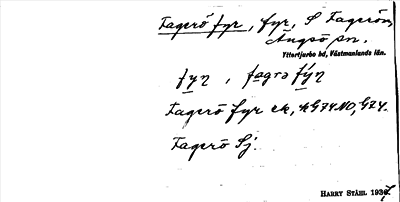 Fagerö fyr, fyr, S Fagerön,
Ängsö sn.
Yttertjurbo hd, Västmanlands län.
fyṛ, fagrə fyṛ
Fagerö fyr ek, G74NO, G74.
Fagerö Sj.
HARRY STÅHL 1937.